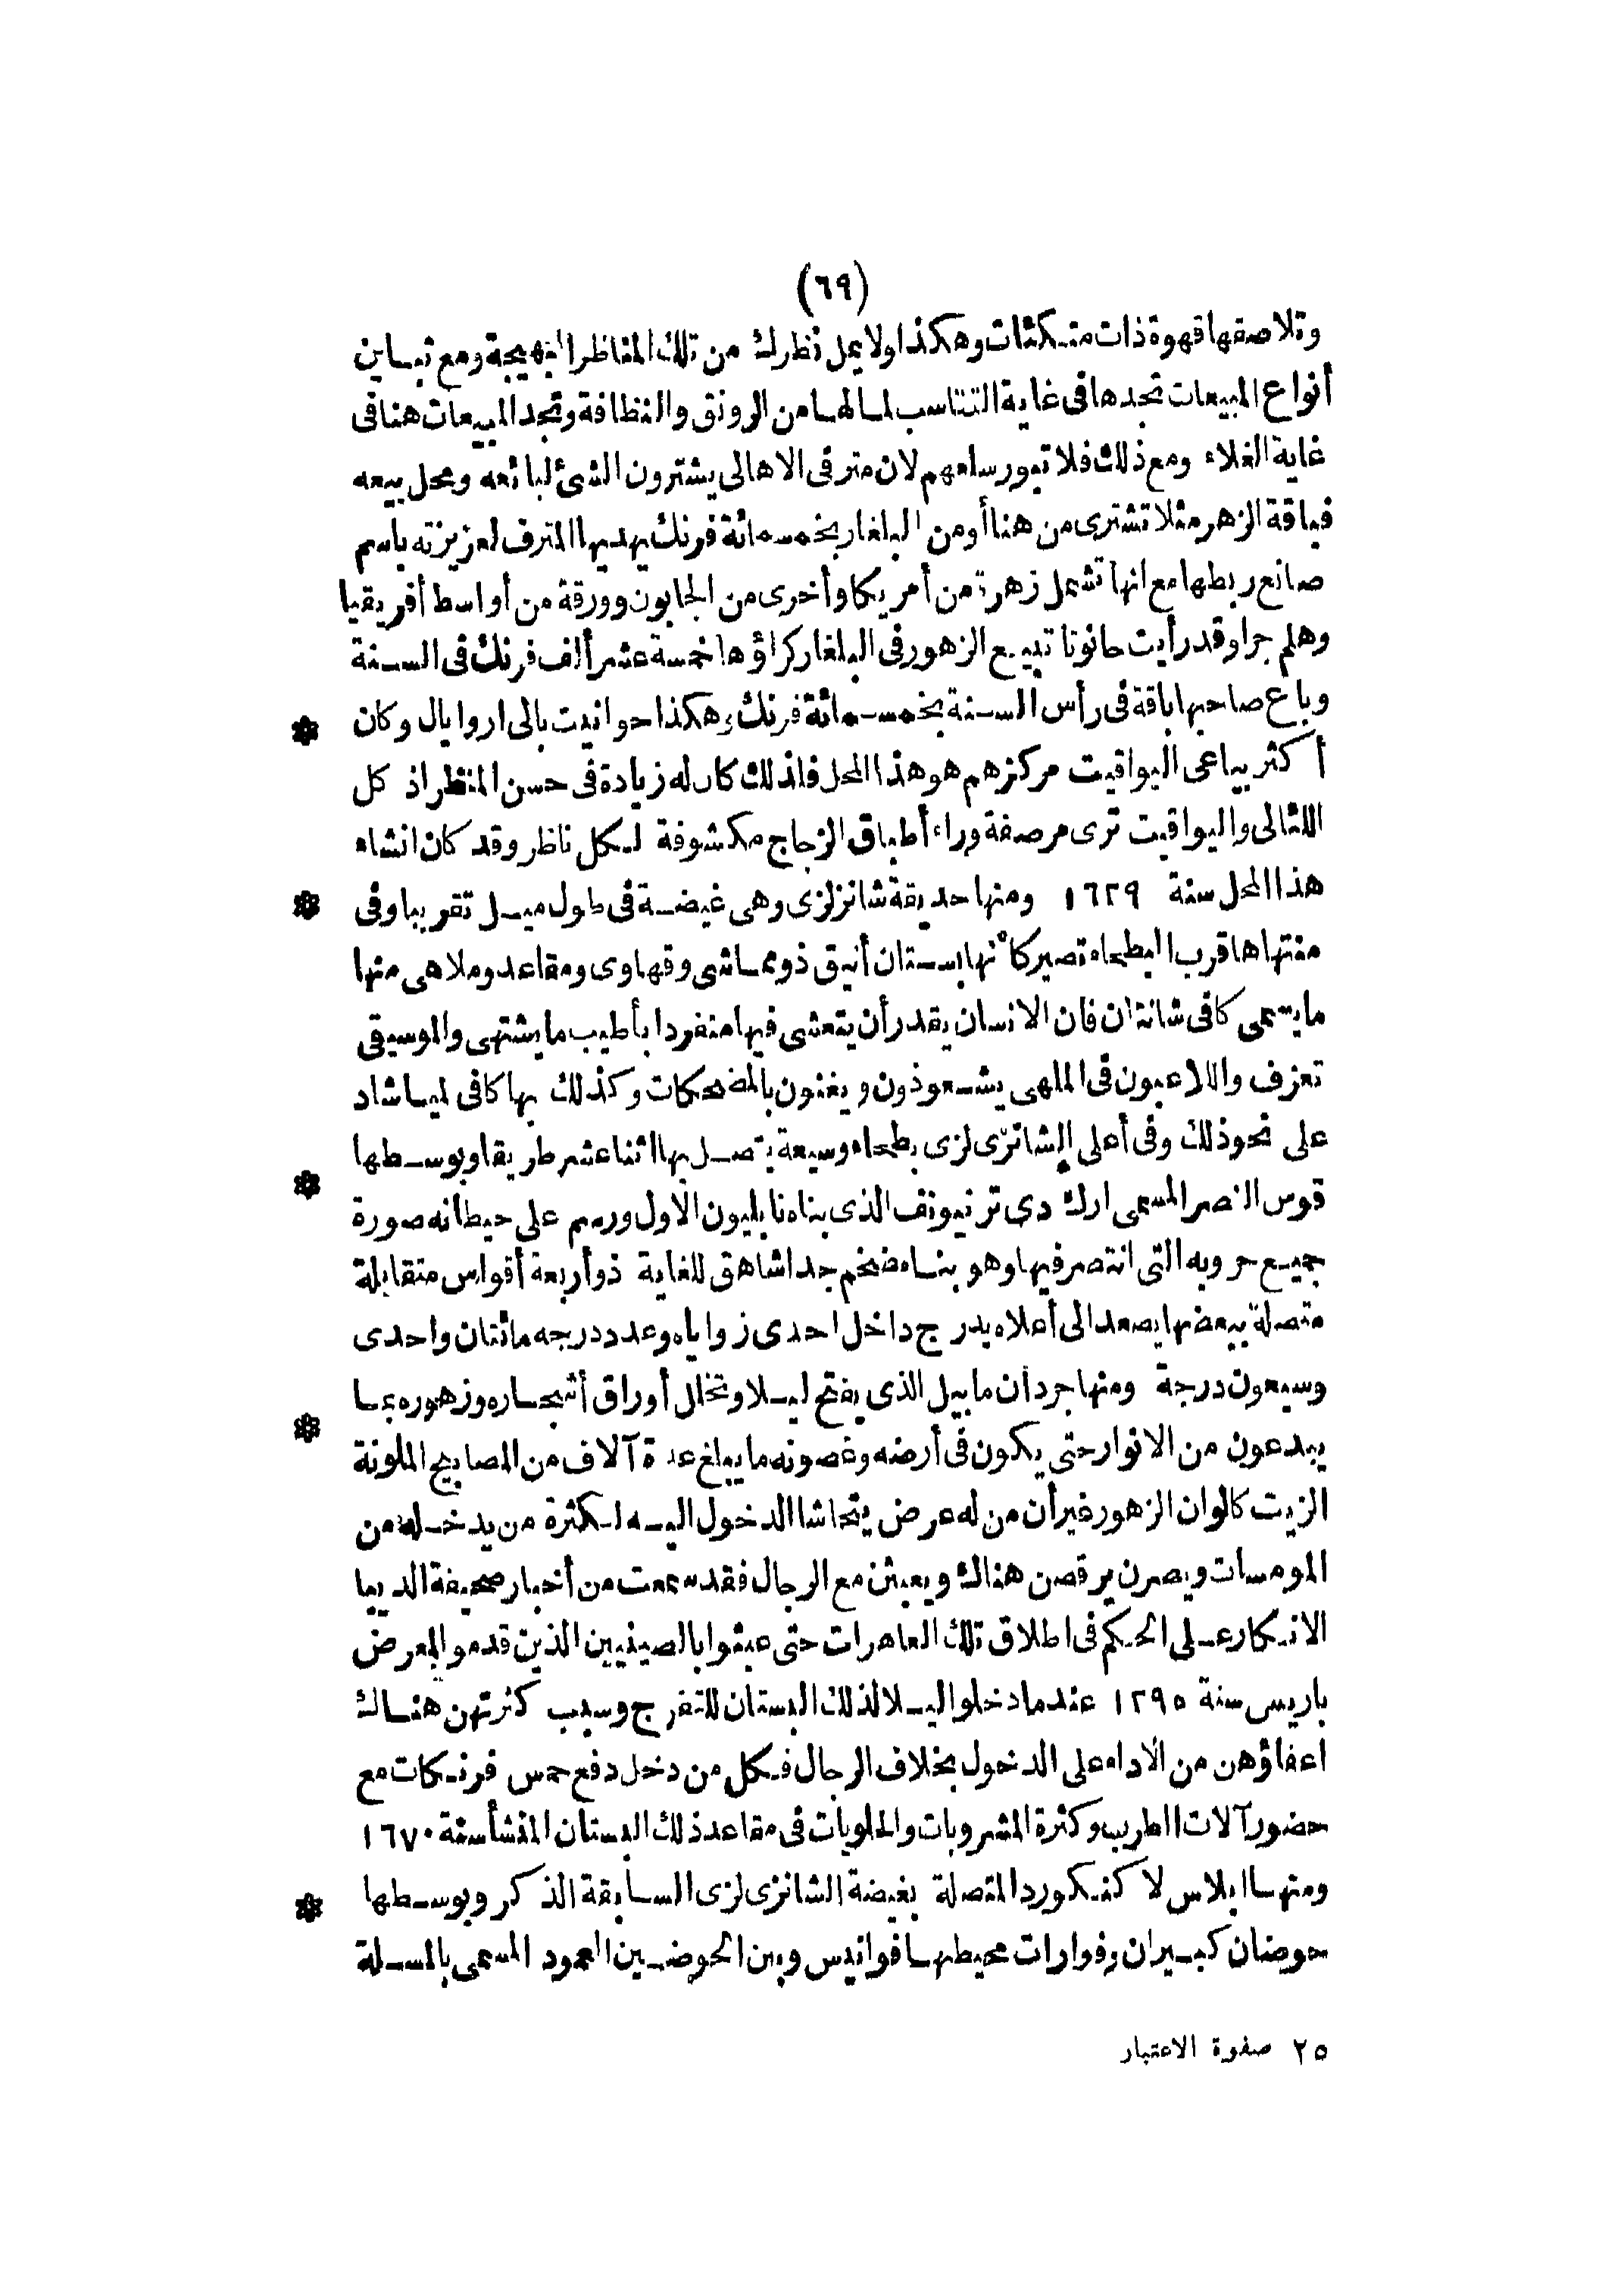 (٦٩)
وتلاصقها قهوة ذات متكئات وهكذا ولا يمل نظرك من تلك المناظر البهيجة ومع تباين
أنواع المبيعات تجدها في غاية التناسب لما لها من الرونق والنظافة وتجد المبيعات هنا في
غاية الغلاء ومع ذلك فلا تبور سلعهم لان مترفى الاهالى يشترون الشئ لبائعه ومحل بيعه
فباقة الزهر مثلا تشترى من هنا أو من البلغار بخمسمائة فرنك يهديها المترف لعزيزته باسم
صانع ربطها مع انها تشمل زهرة من أمريكا وأخرى من الجابون وورقة من أواسط أفريقيا
وهلم جرا وقد رأيت حانوتا تبيع الزهور في البلغار كراؤها خمسة عشر ألف فرنك في السنة
وباع صاحبها باقة في رأس السنة بخمسمائة فرنك وهكذا حوانيت بالى اروايال وكان *
أكثر بياعى اليواقيت مركزهم هو هذا المحل فلذلك كان له زيادة في حسن المنظر اذ كل
اللئالى واليواقيت ترى مرصفة وراء أطباق الزجاج مكشوفة لكل ناظر وقد كان انشاء
هذا المحل سنة ١٦٢٩ ومنها حديقة شانزلزى وهى غيضة في طول ميل تقريبا وفى *
منتهاها قرب البطحاء تصير كأنها بستان أنيق ذو مماشى وقهاوى ومقاعد وملاهى منها
ما يسمى كافى شانتان فان الانسان يقدر أن يتعشى فيها منفردا بأطيب ما يشتهى والموسيقى
تعزف واللاعبون في الملهى يشعوذون ويغنون بالمضحكات وكذلك بها كافى ليباشاد
على نحو ذلك وفى أعلى الشانزى لزى بطحاء وسيعة يتصل بها اثنا عشر طريقا وبوسطها
قوس النصر المسمى ارك دى ترنيونف الذى بناه نابليون الاول ورسم على حيطانه صورة *
جميع حروبه التى انتصر فيها وهو بناء ضخم جدا شاهق للغاية ذو أربعة أقواس متقابلة
متصلة ببعضها يصعد الى أعلاه بدرج داخل احدى زواياه وعدد درجه مائتان واحدى
وسبعون درجة ومنها جردان مابيل الذى يفتح ليلا وتخلل أوراق أشجاره وزهوره بما
يبدعون من الانوار حتى يكون في أرضه وغصونه ما يبلغ عدة آلاف من المصابيح الملونة *
الزيت كالوان الزهور غير أن من له عرض يتحاشا الدخول اليه لكثرة من يدخله من
المومسات ويصرن يرقصن هناك ويعبثن مع الرجال فقد سمعت من أخبار صحيفة الديبا
الانكار على الحكم في اطلاق تلك العاهرات حتى عبثوا بالصينيين الذين قدموا لمعرض
باريس سنة ١٢٩٥ عندما دخلوا ليلا لذلك البستان للتفرج وسبب كثرتهن هناك
اعفاؤهن من الاداء على الدخول بخلاف الرجال فكل من دخل دفع خمس فرنكات مع
حضور آلات الطرب وكثرة المشروبات والحلويات في مقاعد ذلك البستان المنشأ سنة ١٦٧٠
ومنها ابلاس لا كنكورد المتصلة بغيضة الشانزى لزى السابقة الذكر وبوسطها *
حوضان كبيران وفوارات محيط بها فوانيس وبين الحوضين العمود المسمى بالمسلة
٢٥ صفوة الاعتبار